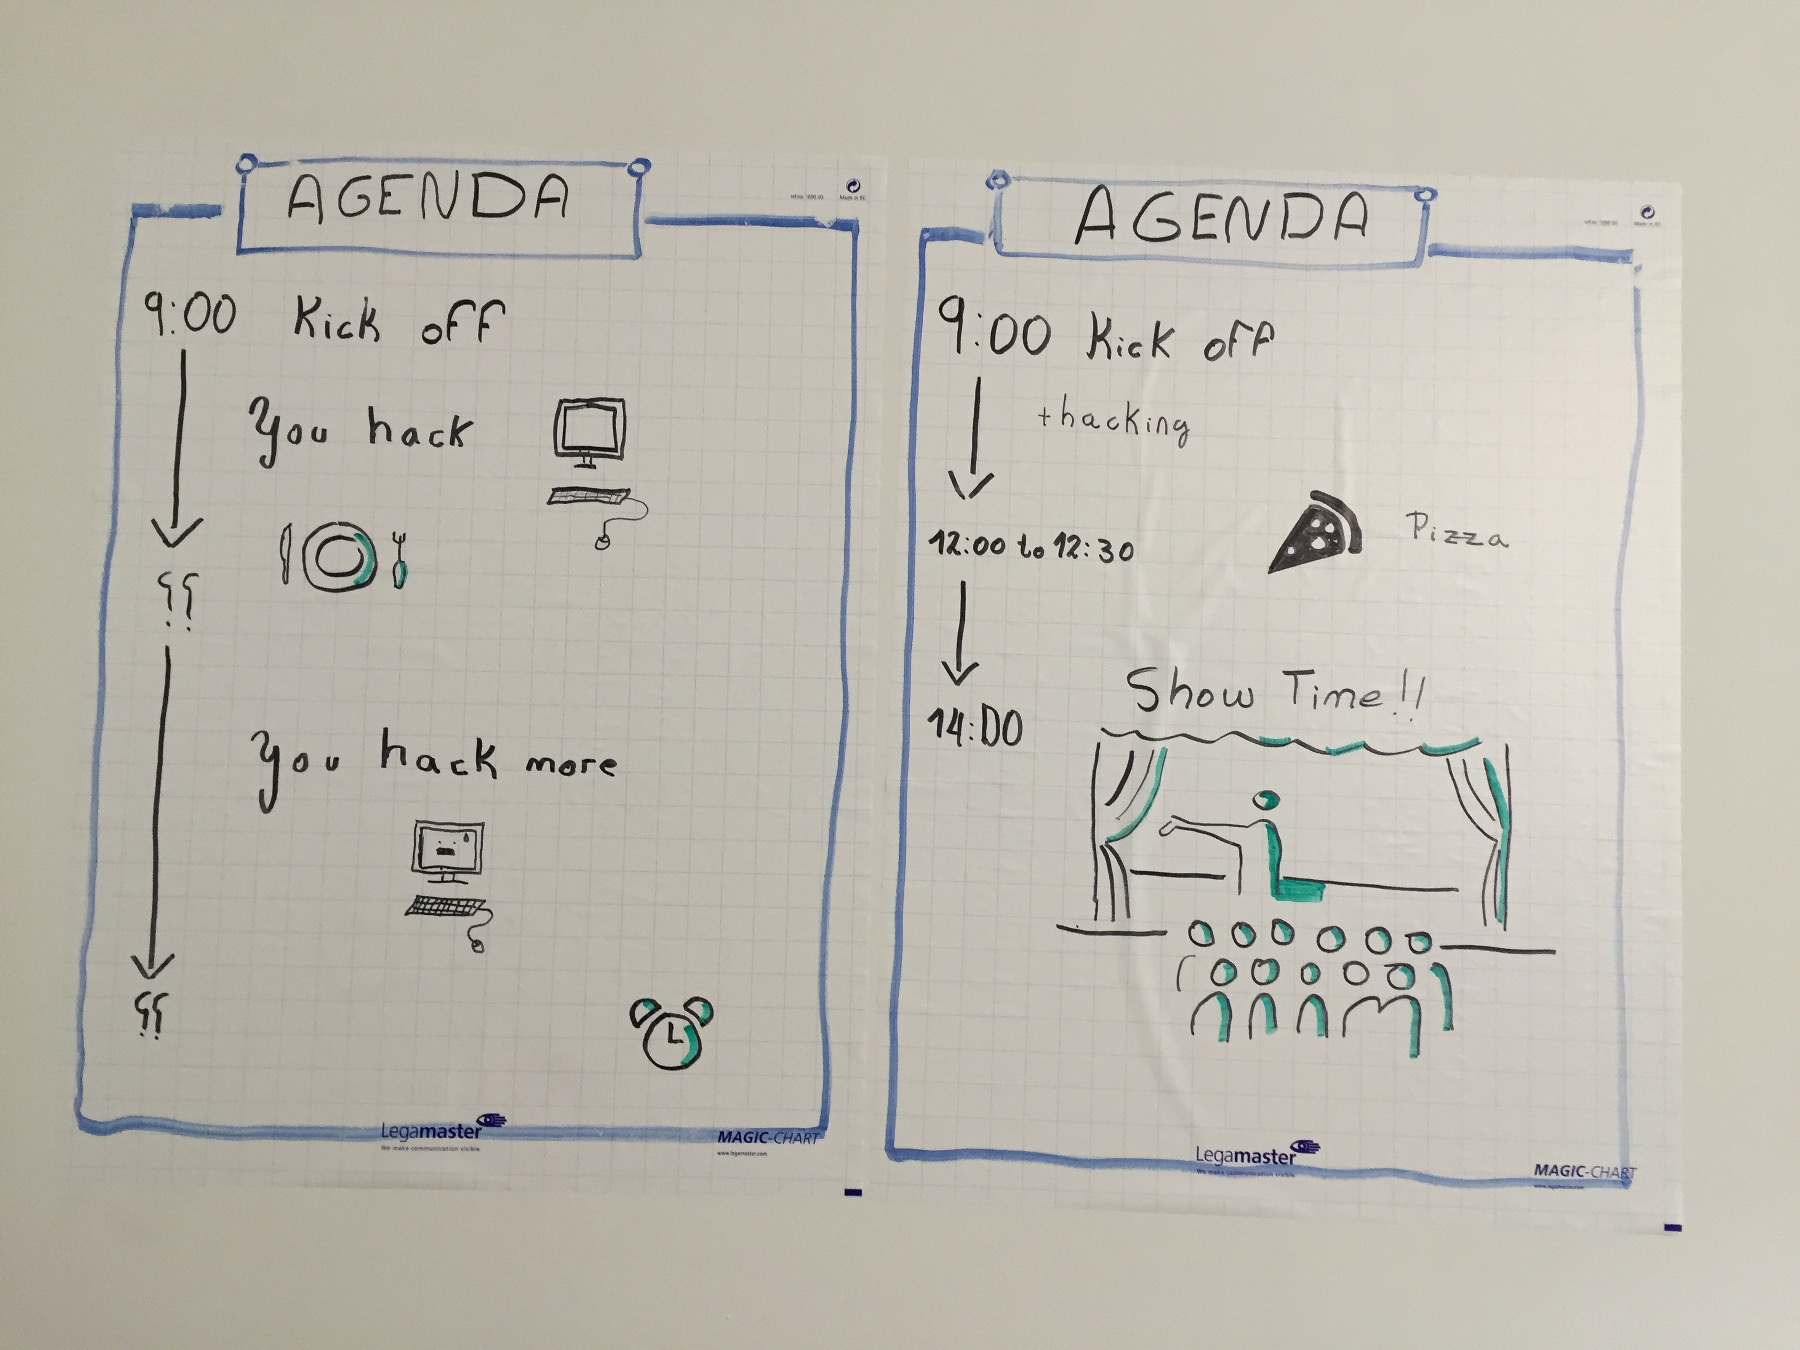 AGENDA
9:00 Kick off
You hack
??
You hack more
??
Legamaster
We make communication visible
MAGIC-CHART
www.legamaster.com
Made in EC
AGENDA
9:00 Kick off
+hacking
12:00 to 12:30 Pizza
Show Time!!
14:00
Legamaster
We make communication visible
MAGIC-CHART
www.legamaster.com